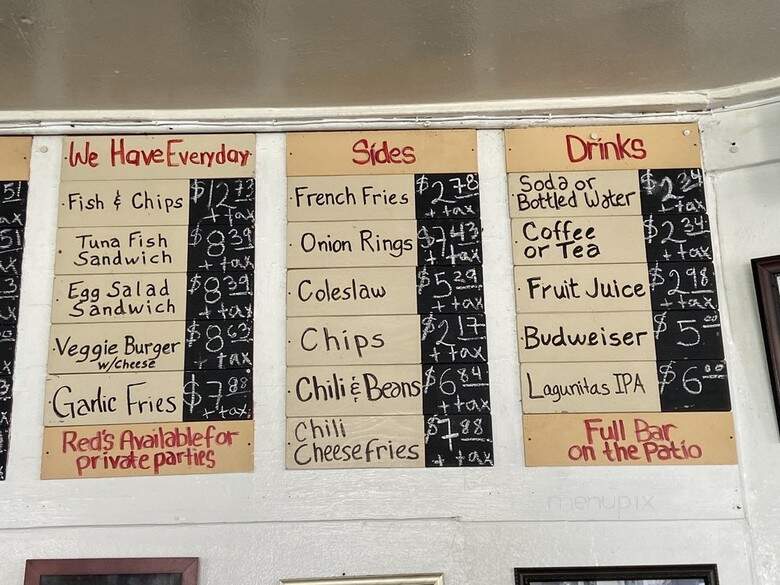 We Have Everyday
Fish & Chips $12.73 + tax
Tuna Fish
Sandwich $8.39 + tax
Egg Salad
Sandwich $8.39 + tax
Veggie Burger
w/cheese $8.63 + tax
Garlic Fries $7.88 + tax
Red's Available for
private parties
Sides
French Fries $2.78 + tax
Onion Rings $7.43 + tax
Coleslaw $5.29 + tax
Chips $2.17 + tax
Chili & Beans $6.84 + tax
Chili
Cheese fries $7.88 + tax
Drinks
Soda or
Bottled Water + tax
Coffee
or Tea $2.34 + tax
Fruit Juice $2.98 + tax
Budweiser $5.00
Lagunitas IPA $6.00
Full Bar
on the Patio
menupix